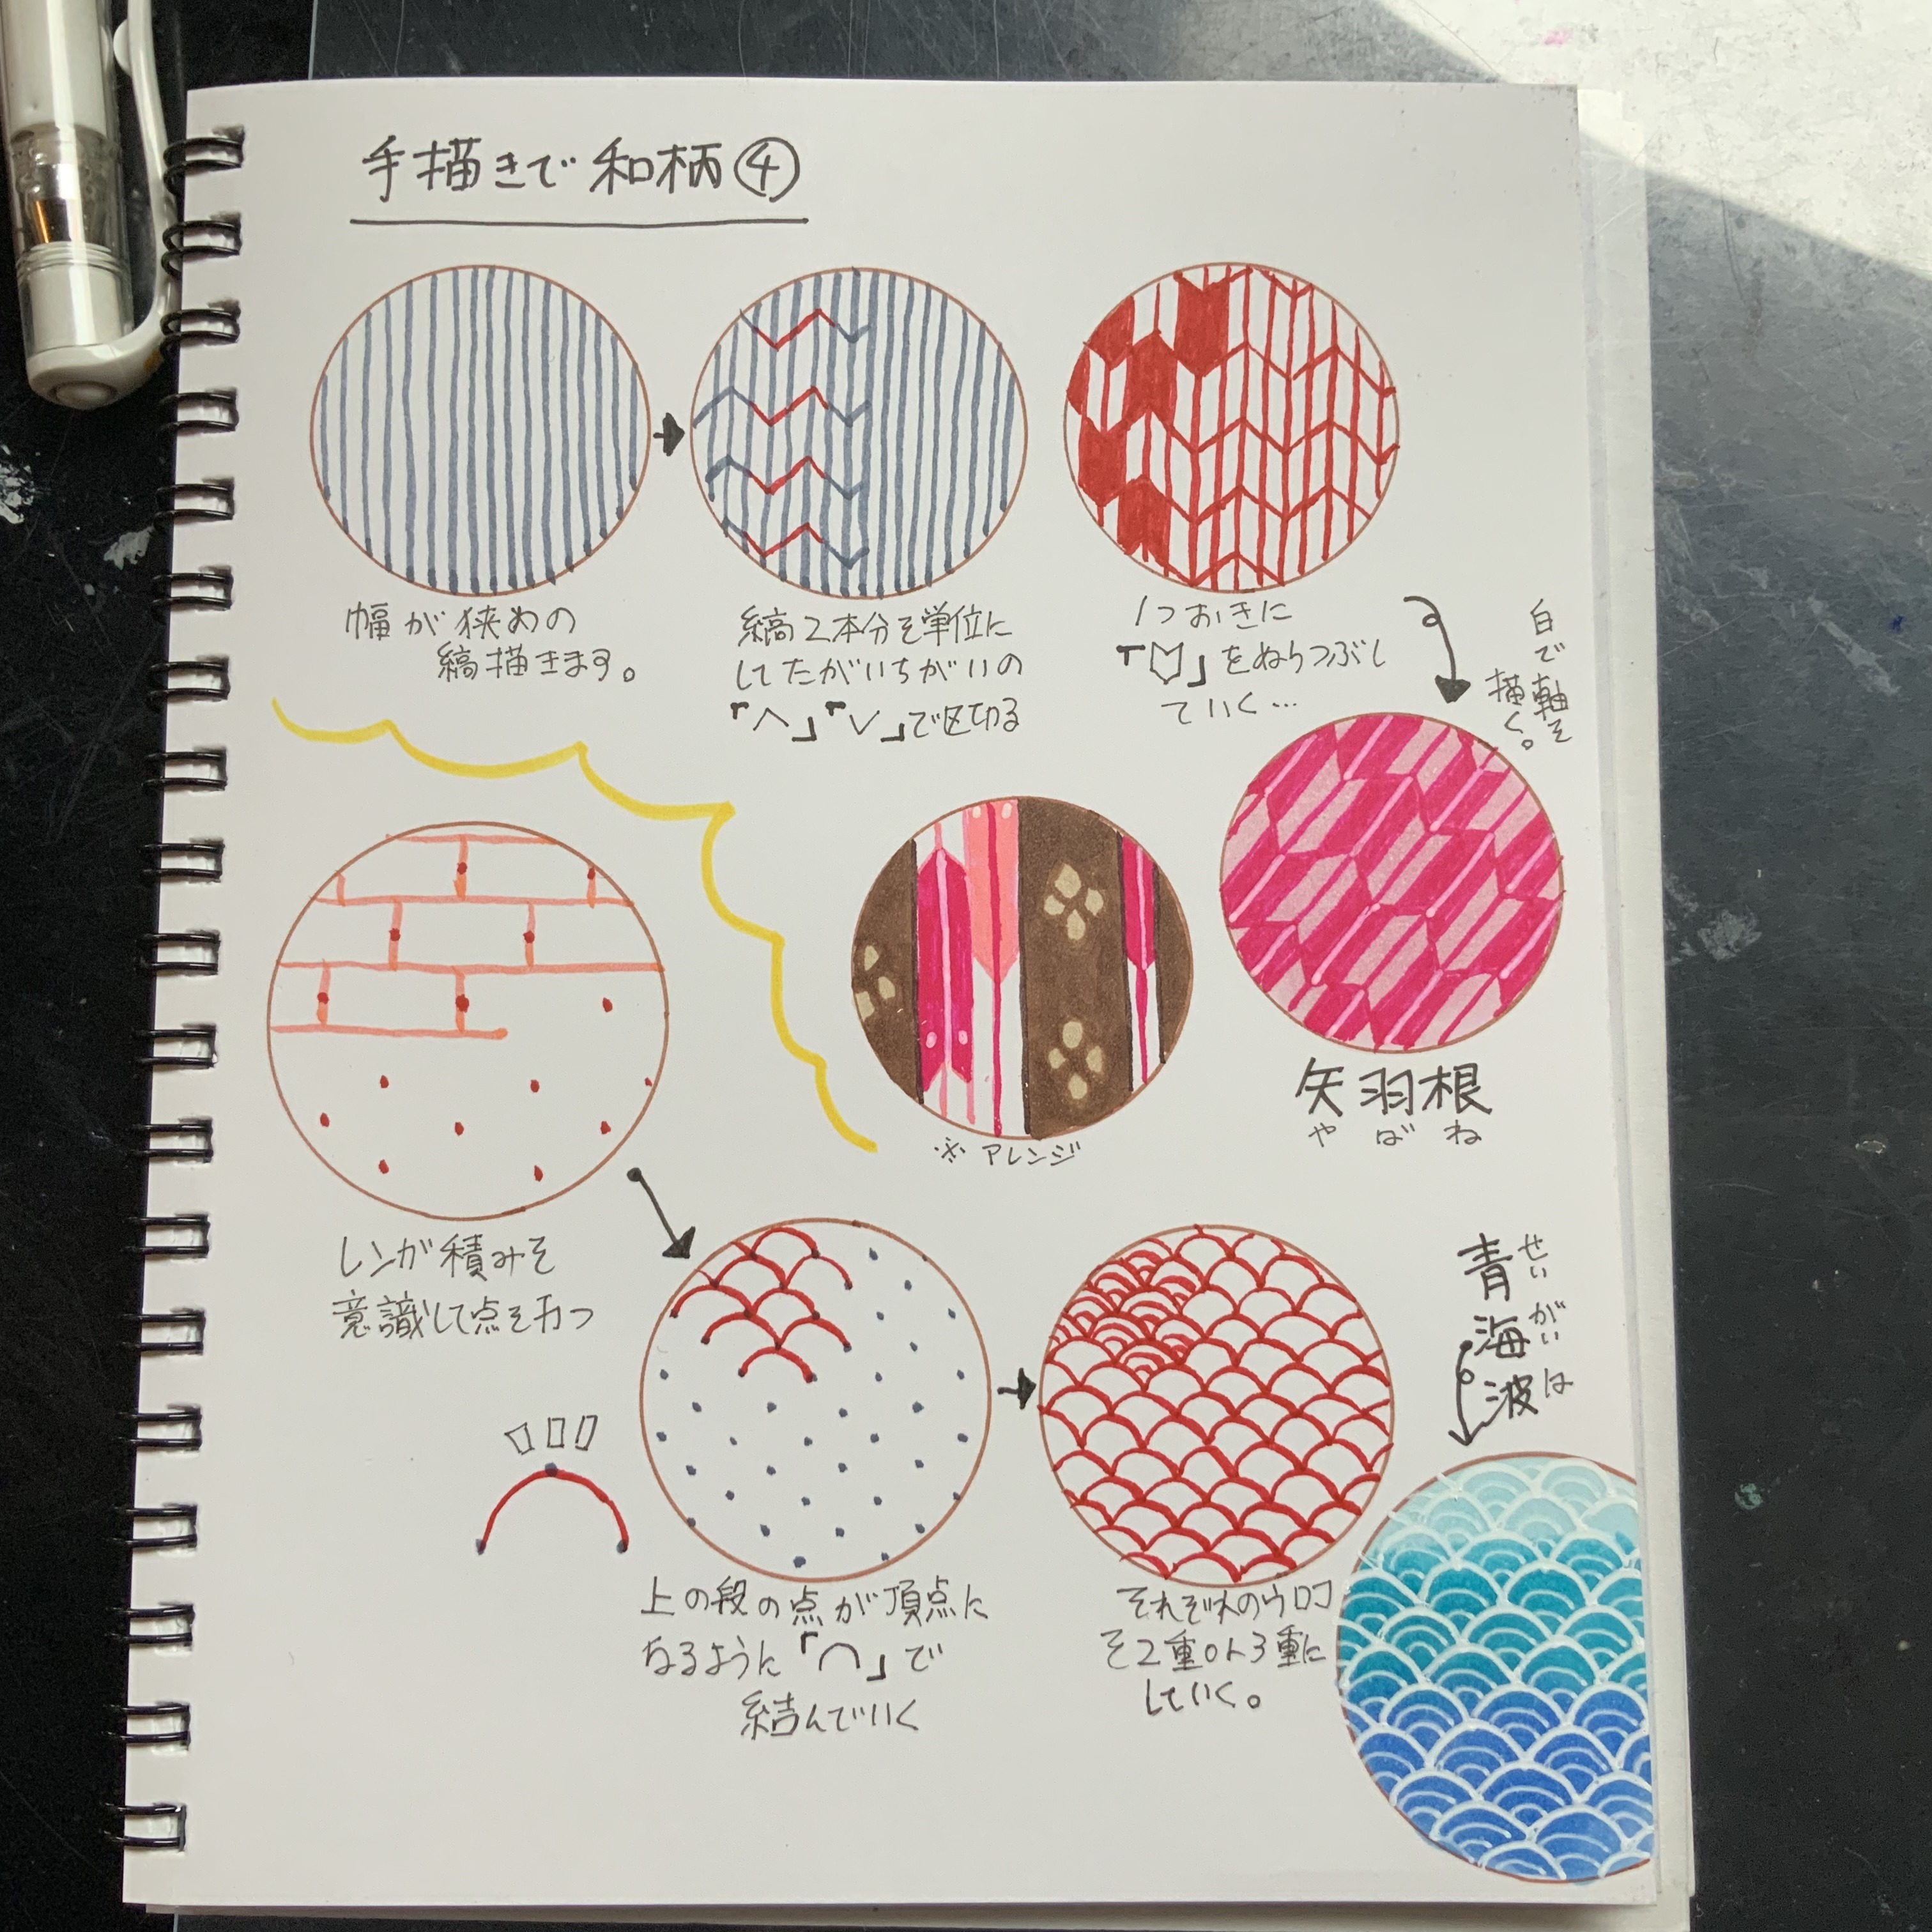 手描きで和柄④
幅が狭めの
縞描きます。
縞2本分を単位に
してたがいちがいの
「∧」「∨」で区切る
1つおきに
「」をぬりつぶし
ていく…
白で軸を
描く。
※アレンジ
矢羽根
やばね
レンガ積みを
意識して点を打つ
上の段の点が頂点に
なるように「⌒」で
結んでいく
それぞれのウロコ
を2重or3重に
していく。
青海波
せいがいは